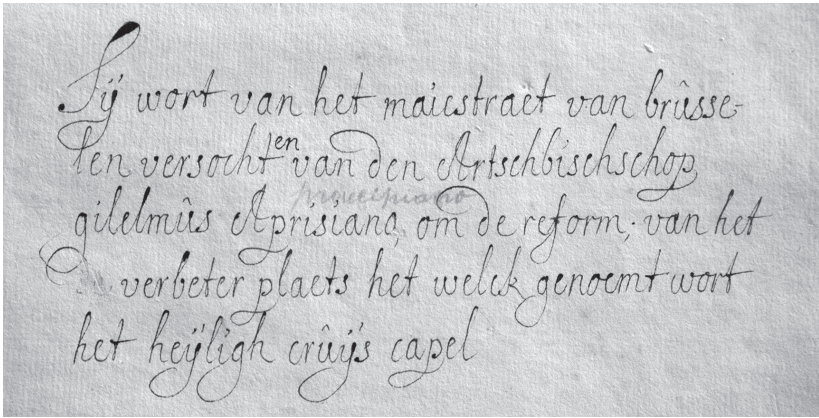 Sÿ wort van het maiestraet van brûsse-
len versocht en van den Artschbischschop
precipiano
gilelmûs Aprisiano, om de reform; van het
verbeter plaets het welck genoemt wort
het heÿligh crûÿs capel